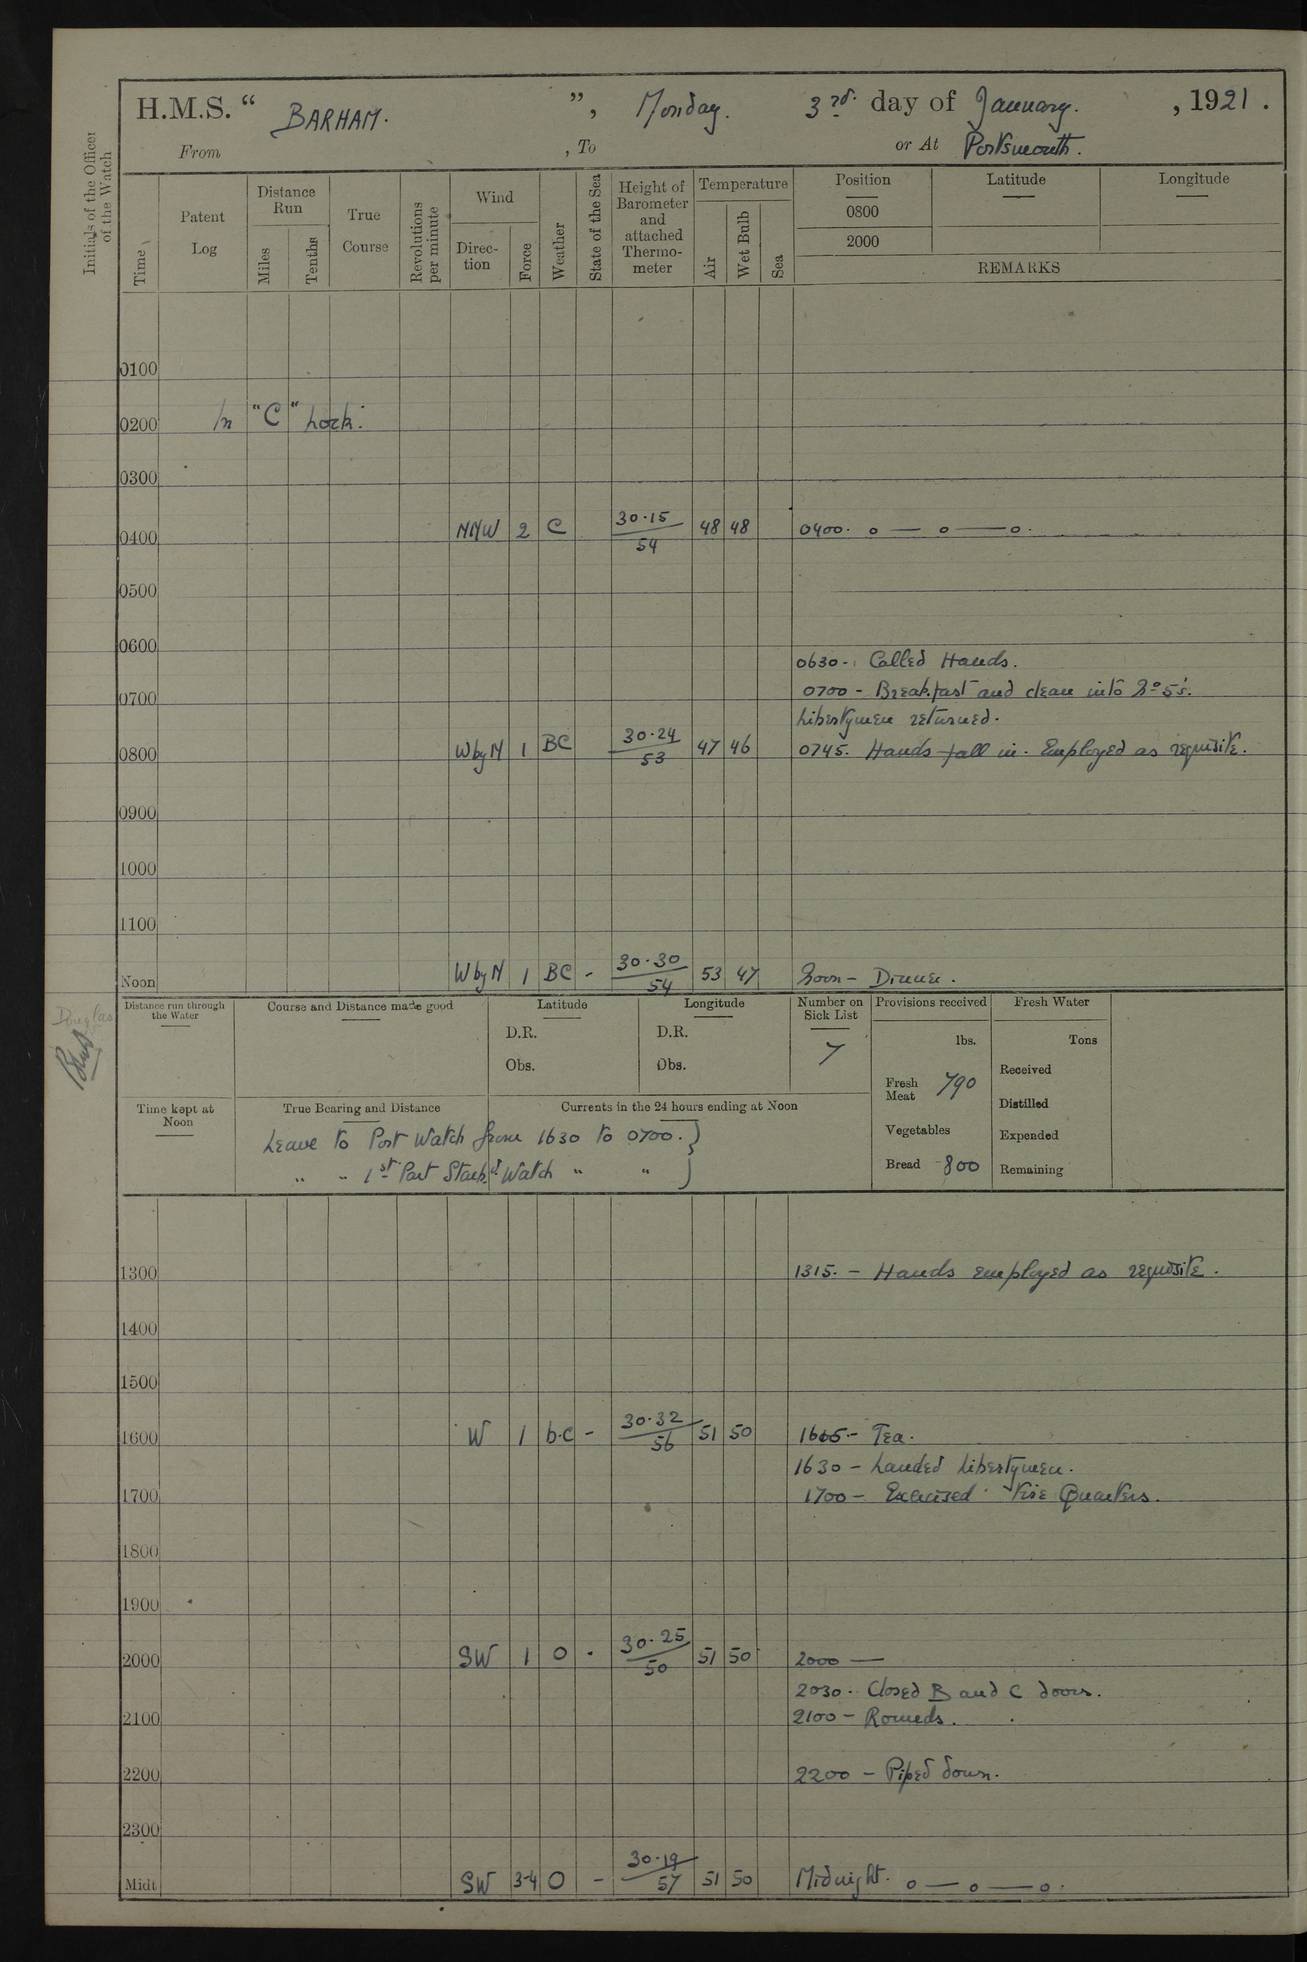 H.M.S. " BARHAM. ", Monday. 3rd. day of January. , 1921.
From , To or At Portsmouth.
Initials of the Officer of the Watch
Time
Patent Log
Distance Run
Miles
Tenths
True Course
Revolutions per minute
Wind
Direction
Force
Weather
State of the Sea
Height of Barometer and attached Thermometer
Temperature
Air
Wet Bulb
Sea
Position
0800
2000
Latitude
Longitude
REMARKS
0100
0200 In "C" Lock.
0300
0400 NNW 2 C 30.15 / 54 48 48 0400. o — o — o.
0500
0600
0630 - Called Hands.
0700 0700 - Breakfast and clean into No 5's.
Libertymen returned.
0800 W by N 1 BC 30.24 / 53 47 46 0745. Hands fall in. Employed as requisite.
0900
1000
1100
Noon W by N 1 BC - 30.30 / 54 53 47 Noon - Dinner.
Distance run through the Water
Course and Distance made good
Latitude
D.R.
Obs.
Longitude
D.R.
Obs.
Number on Sick List
7
Provisions received
lbs.
Fresh Meat 790
Vegetables
Bread 800
Fresh Water
Tons
Received
Distilled
Expended
Remaining
Douglas
Time kept at Noon
True Bearing and Distance
Currents in the 24 hours ending at Noon
Leave to Port Watch from 1630 to 0700. }
" " 1st Part Starbd Watch " " }
1300 1315. - Hands employed as requisite.
1400
1500
1600 W 1 b.c - 30.32 / 56 51 50 1605 - Tea.
1630 - Landed Libertymen.
1700 1700 - Exercised Fire Quarters.
1800
1900
2000 SW 1 O - 30.25 / 50 51 50 2000 —
2030. Closed B and C doors.
2100 2100 - Rounds.
2200 2200 - Piped down.
2300
Midt SW 3-4 O - 30.19 / 57 51 50 Midnight. o — o — o.